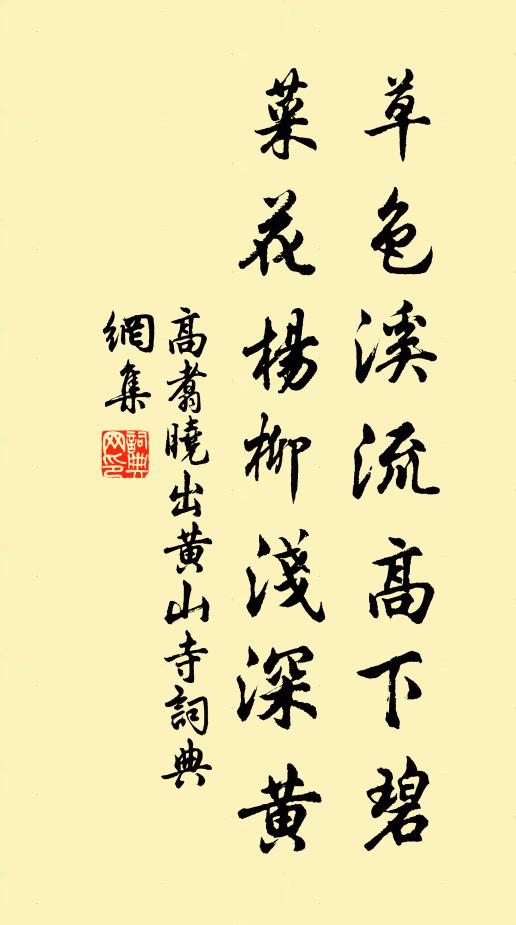 草色溪流高下碧
菜花楊柳淺深黄
高翥曉出黄山寺詞典
網集
詞典
网印